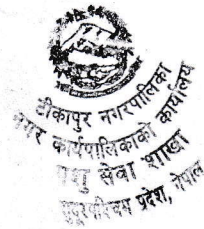 टीकापुर नगरपालिका
नगर कार्यपालिकाको कार्यालय
पशु सेवा शाखा
सुदूरपश्चिम प्रदेश, नेपाल